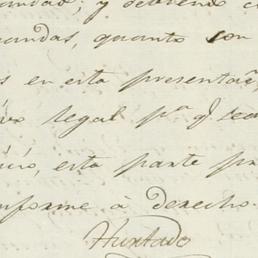 y deviendo
mandas, quanto con
s en esta presentac
legal pª q.
esta parte
nforme à derecho.
Hurtado